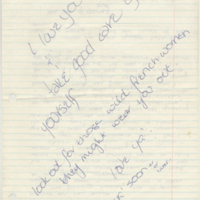 I love you
take good care of
yourself
look out for those wild french women
they might wear you out
love ya
soon